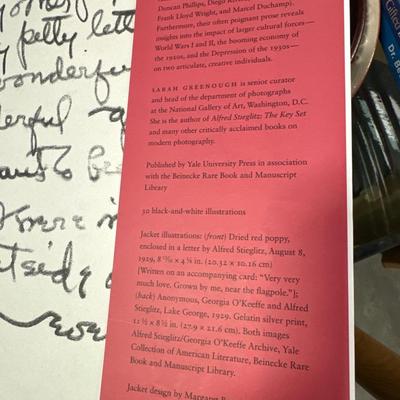 petty lett
wonderfu
derful
Duncan Phillips, Diego
Frank Lloyd Wright, and Marcel Duchamp).
Furthermore, their often poignant prose reveals
insights into the impact of larger cultural forces—
World Wars I and II, the booming economy of
the 1920s, and the Depression of the 1930s—
on two articulate, creative individuals.
SARAH GREENOUGH is senior curator
and head of the department of photographs
at the National Gallery of Art, Washington, D.C.
She is the author of Alfred Stieglitz: The Key Set
and many other critically acclaimed books on
modern photography.
Published by Yale University Press in association
with the Beinecke Rare Book and Manuscript
Library
30 black-and-white illustrations
Jacket illustrations: (front) Dried red poppy,
enclosed in a letter by Alfred Stieglitz, August 8,
1929, 8 5/16 × 4 1/4 in. (20.32 × 10.16 cm)
[Written on an accompanying card: “Very very
much love. Grown by me, near the flagpole.”];
(back) Anonymous, Georgia O'Keeffe and Alfred
Stieglitz, Lake George, 1929. Gelatin silver print,
11 1/2 × 8 1/2 in. (27.9 × 21.6 cm). Both images
Alfred Stieglitz/Georgia O'Keeffe Archive, Yale
Collection of American Literature, Beinecke Rare
Book and Manuscript Library.
Jacket design by Margaret